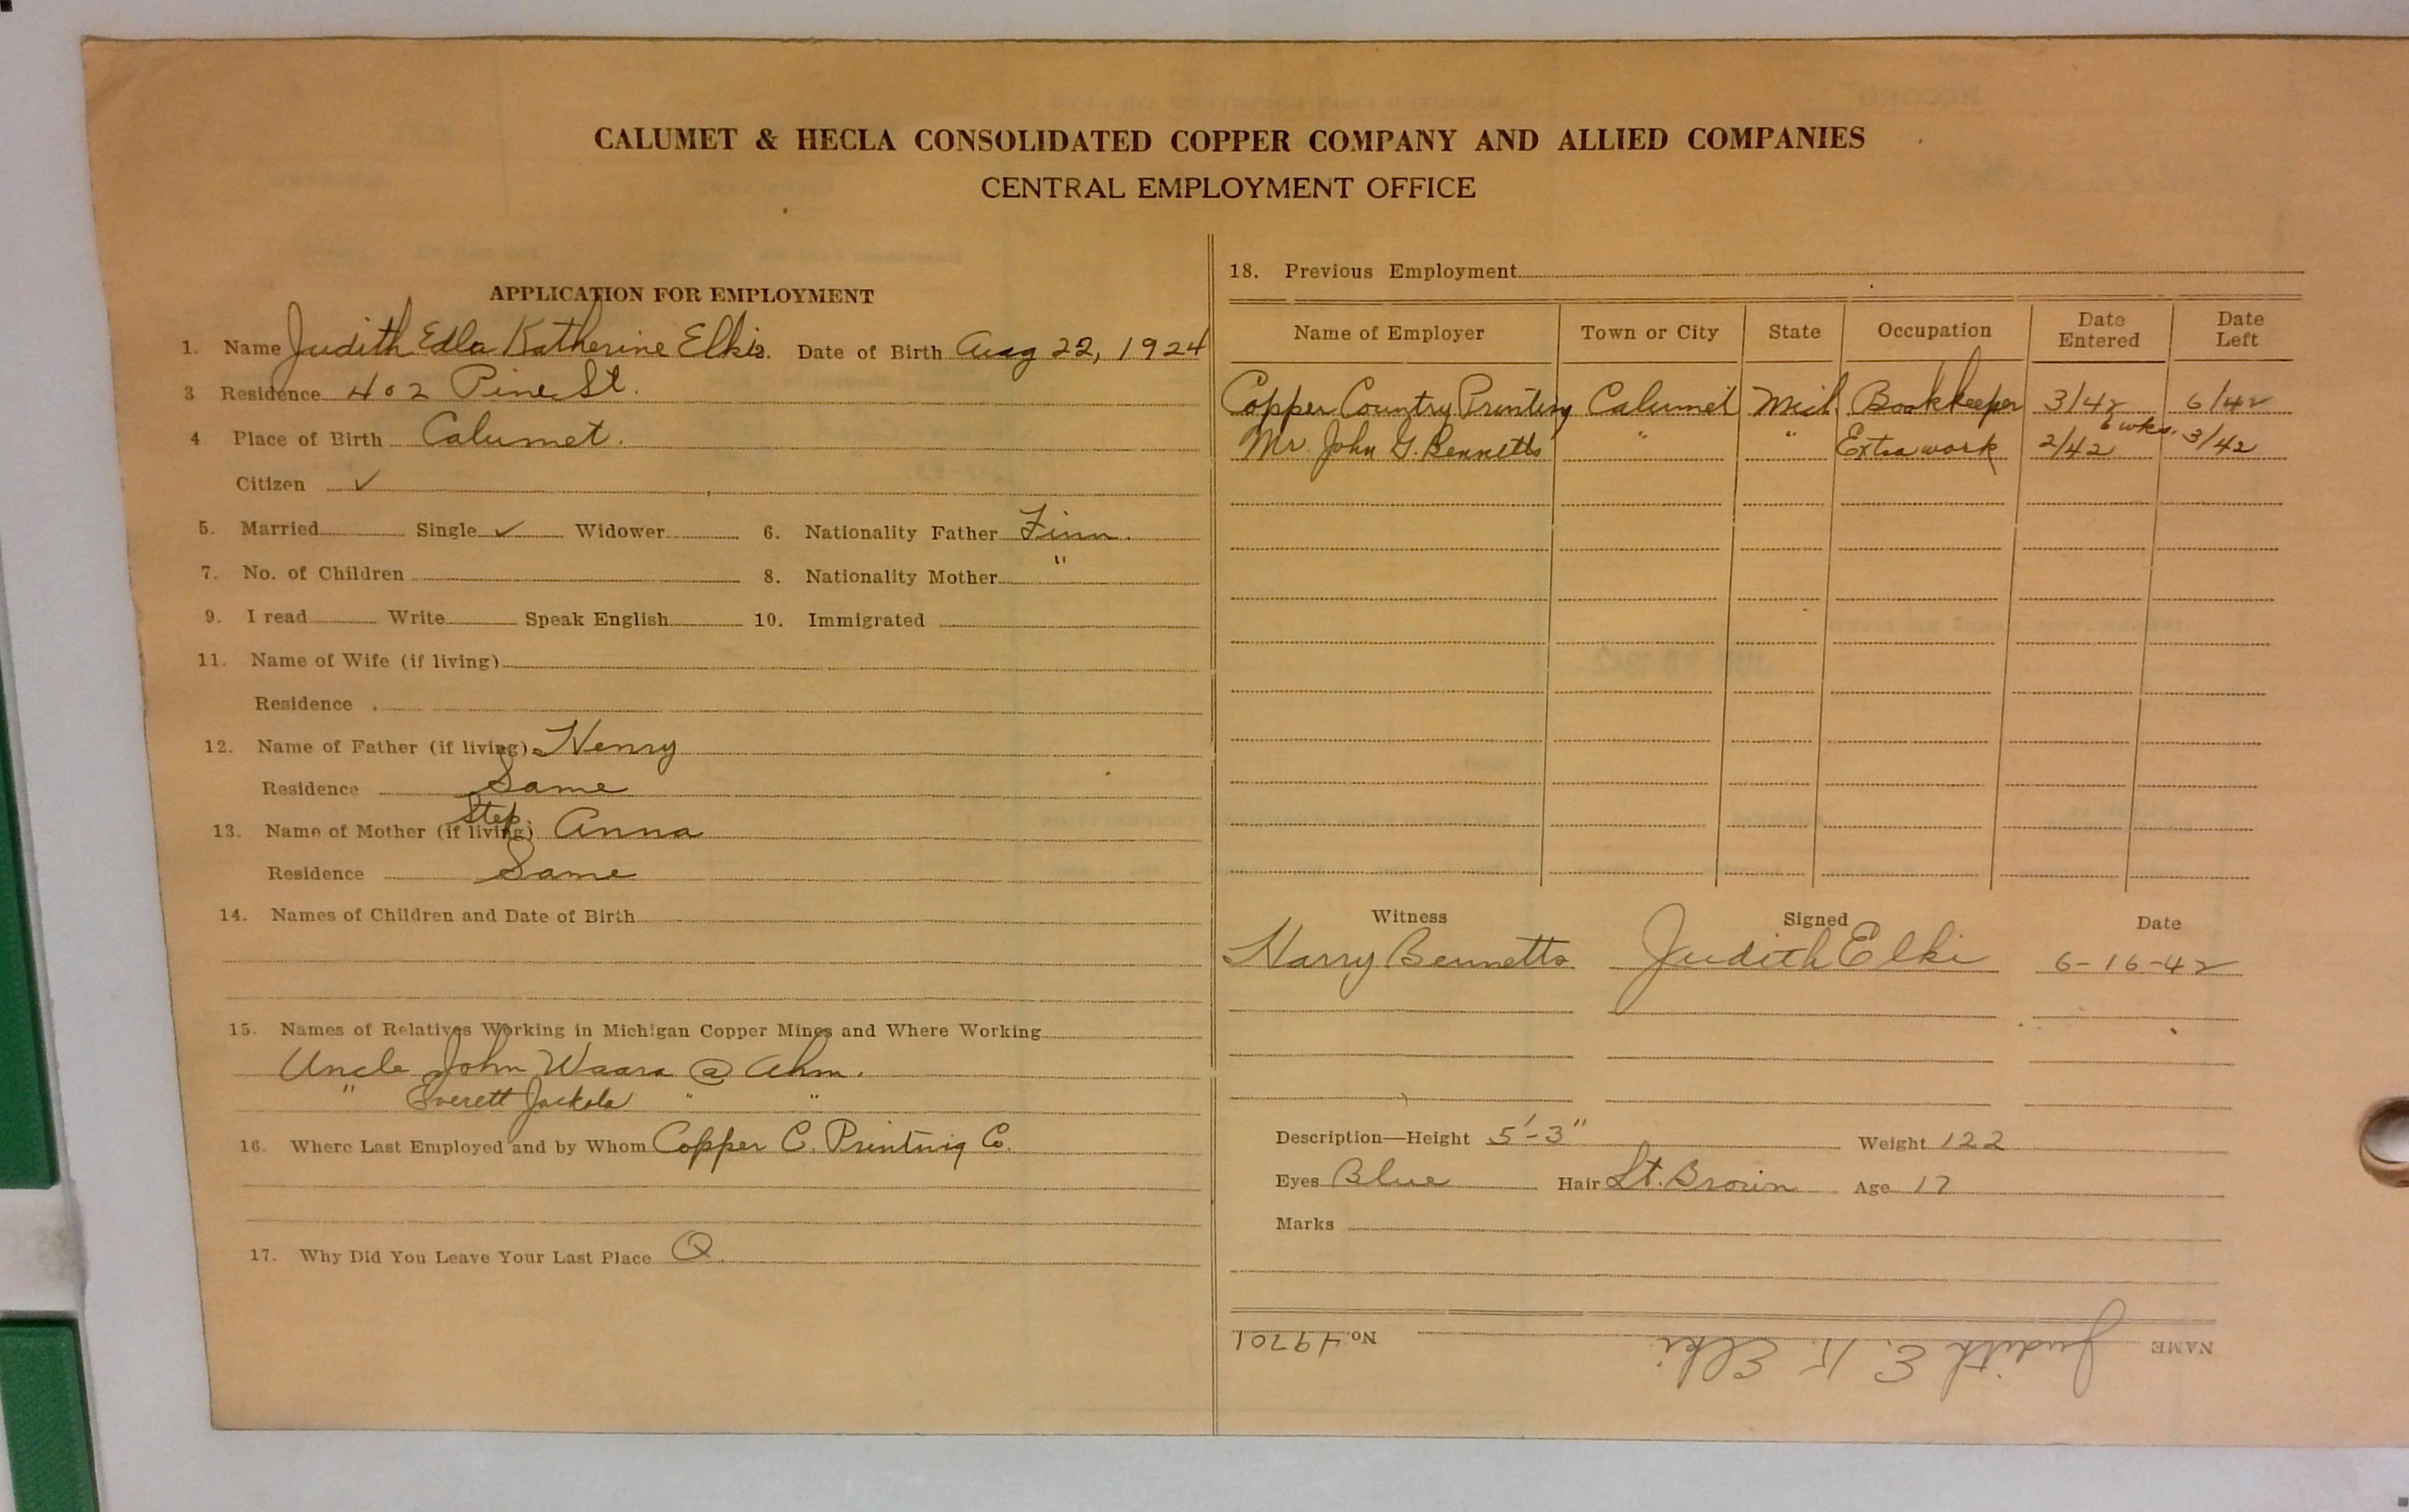 CALUMET & HECLA CONSOLIDATED COPPER COMPANY AND ALLIED COMPANIES
CENTRAL EMPLOYMENT OFFICE
APPLICATION FOR EMPLOYMENT
1. Name Judith Edla Katherine Elki 2. Date of Birth Aug 22, 1924
3 Residence 402 Pine St.
4 Place of Birth Calumet.
Citizen ✓
5. Married Single ✓ Widower 6. Nationality Father Finn.
7. No. of Children 8. Nationality Mother "
9. I read Write Speak English 10. Immigrated
11. Name of Wife (if living)
Residence
12. Name of Father (if living) Henry
Residence Same
Step
13. Name of Mother (if living) Anna
Residence Same
14. Names of Children and Date of Birth
15. Names of Relatives Working in Michigan Copper Mines and Where Working
Uncle John Waara @ Ahm.
" Everett Jackola " "
16. Where Last Employed and by Whom Copper C. Printing Co.
17. Why Did You Leave Your Last Place Q.
18. Previous Employment
Name of Employer Town or City State Occupation Date Entered Date Left
Copper Country Printing Calumet Mich. Bookkeeper 3/42 6/42
Mr. John G. Bennetts " " Extra work 2/42 6 wks. 3/42
Witness Signed Date
Harry Bennetts Judith Elki 6-16-42
Description—Height 5'-3" Weight 122
Eyes Blue Hair Lt. Brown Age 17
Marks
NAME Judith E. K. Elki No. 49701